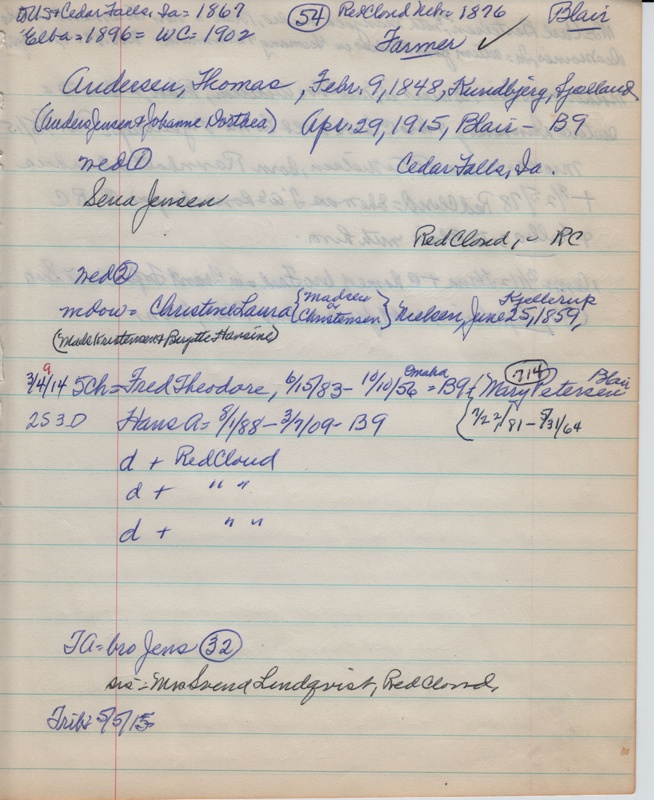 US + Cedar Falls, Ia = 1867 (54) Red Cloud Nebr = 1876 Blair
Elba = 1896 = WC = 1902 Farmer ✓
Andersen, Thomas, Febr. 9, 1848, Kundbjerg, Sjælland
(Anders Jensen + Johanne Dorthea) Apr. 29, 1915, Blair - B9
wed ① Cedar Falls, Ia.
Sena Jensen
Red Cloud, - RC
wed ②
widow = Christine Laura {Madsen or Christensen} Nielsen, June 25, 1859, Kjellerup
(Mads Kristensen + Birgitte Hansine)
3/4/14 9 5 Ch = Fred Theodore, 6/15/83 - 10/10/56 Omaha = B9 { (714) Mary Petersen Blair
2S 3D Hans A = 8/1/88 - 3/7/09 - B9 7/22/81 - 5/31/64
d + Red Cloud
d + " "
d + " "
TA = bro Jens (32)
sis = Mrs Svend Lindqvist, Red Cloud,
Trib: 5/5/15